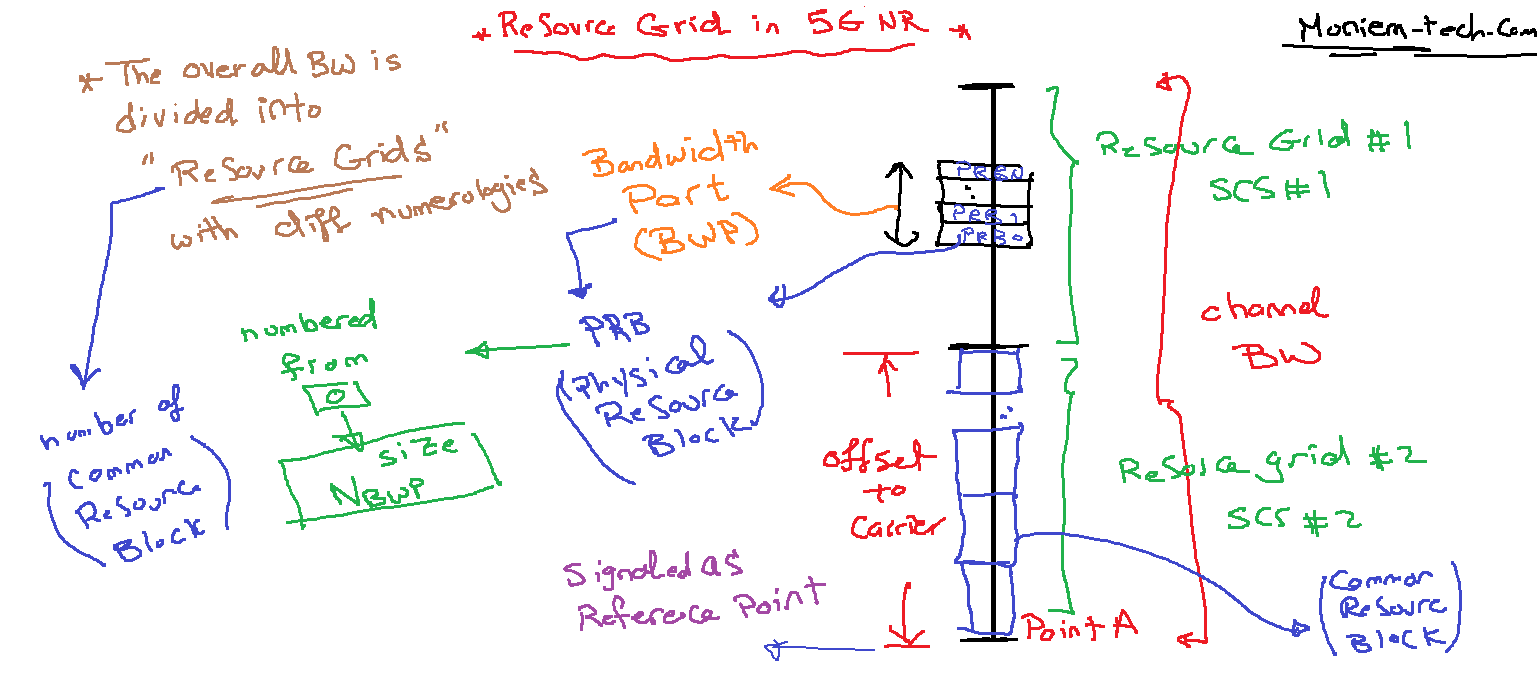 * ReSource Grid in 5G NR *
Moniem-tech.com
* The overall BW is
divided into
"ReSource Grids"
with diff numerologies
Bandwidth
Part
(BWP)
PRBN
PRB 1
PRB 0
ReSource Grid #1
SCS #1
channel
BW
numbered
from
0
size
NBWP
PRB
(Physical
ReSource
Block)
number of
(Common
ReSource
Block)
offset
to
Carrier
ReSorce grid #2
SCS #2
Signaled as
Reference Point
Point A
(Common
ReSource
Block)